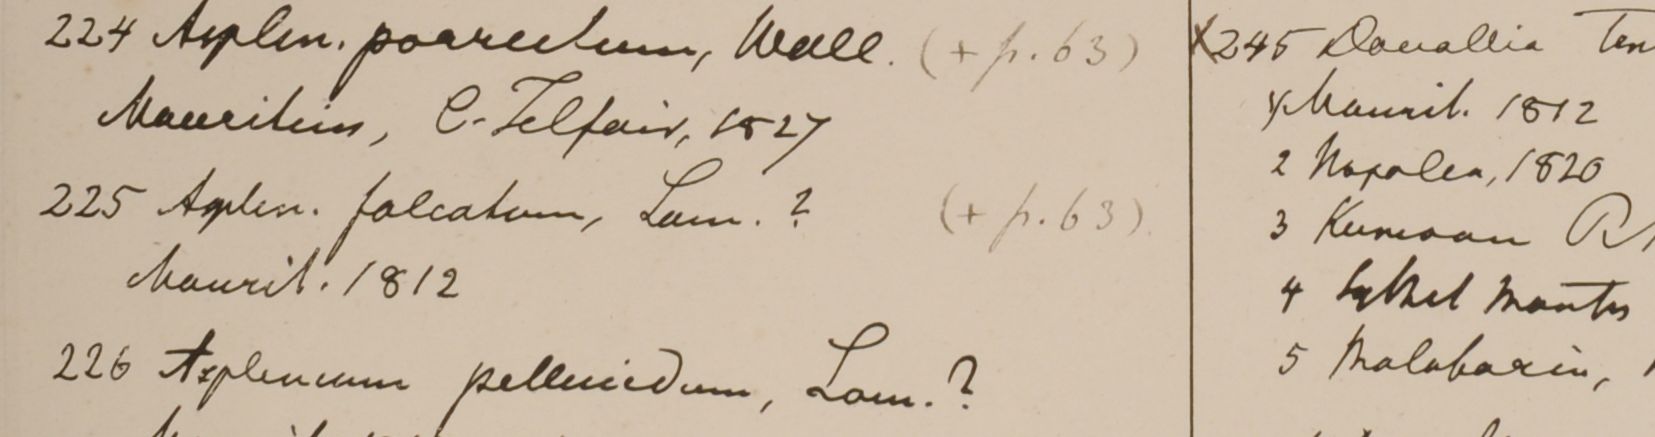 224 Asplen. porrectum, Wall. (+ p. 63)
Mauritius, C. Telfair, 1827
225 Asplen. falcatum, Lam. ? (+ p. 63)
Maurit. 1812
226 Asplenium pellucidum, Lam. ?
X 245 Davallia Ten
1 Maurit. 1812
2 Napalea, 1820
3 Kumaon R
4 Sylhet Montes
5 Malabaria,